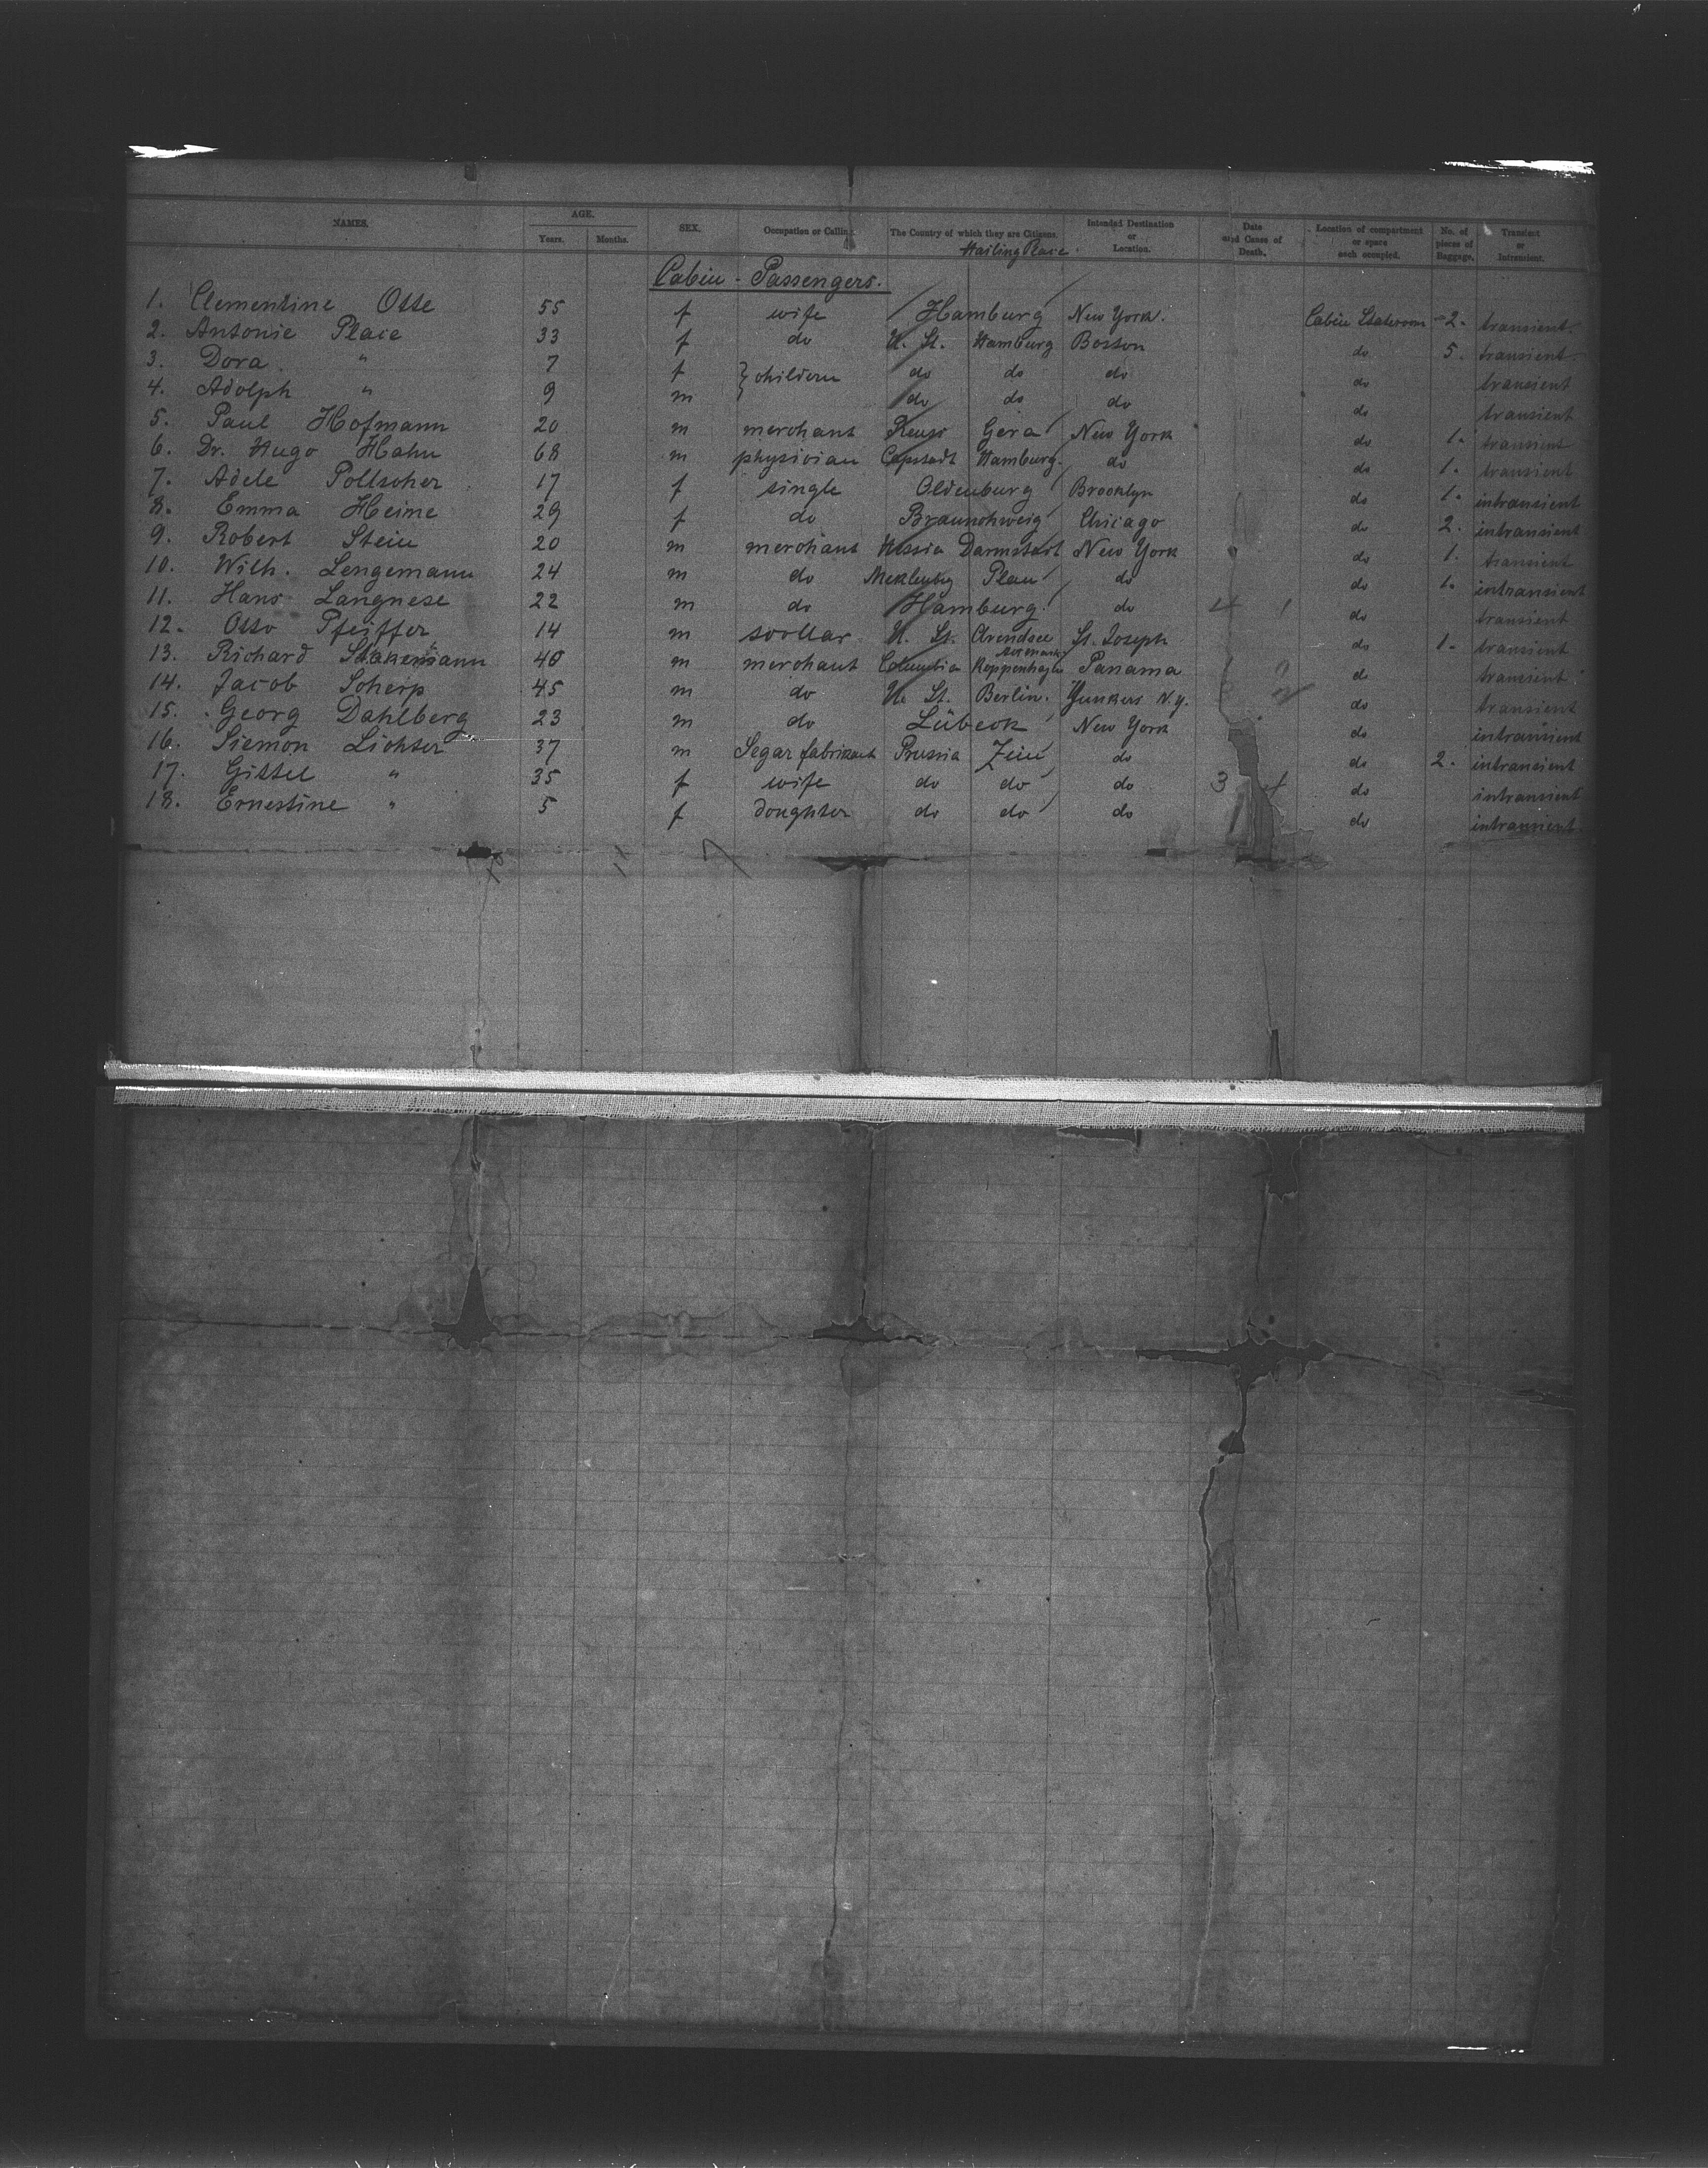 NAMES. AGE. Years. Months. SEX. Occupation or Calling. The Country of which they are Citizens. Hailing Place Intended Destination or Location. Date and Cause of Death. Location of compartment or space each occupied. No. of pieces of Baggage. Transient or Intransient.
Cabin - Passengers.
1. Clementine Otte 55 f wife Hamburg New York. Cabin Stateroom 2. transient.
2. Antonie Plaie 33 f do U. St. Hamburg Boston do 5. transient
3. Dora " 7 f } children do do do do transient
4. Adolph " 9 m } do do do do transient
5. Paul Hofmann 20 m merchant Reuss Gera New York do 1. transient
6. Dr. Hugo Hahn 68 m physician Capstadt Hamburg. do do 1. transient
7. Adele Pollscher 17 f single Oldenburg Brooklyn do 1. intransient
8. Emma Heine 29 f do Braunschweig Chicago do 2. intransient
9. Robert Stein 20 m merchant Hessia Darmstadt New York do 1. transient
10. Wilh. Lengemann 24 m do Meklenbg Plau do do 1. intransient
11. Hans Langnese 22 m do Hamburg. do do transient
12. Otto Pfeiffer 14 m scollar U. St. Arendsee Altmark St. Joseph do 1. transient
13. Richard Stakemann 40 m merchant Columbia Keppenhagen Panama do transient
14. Jacob Scherp 45 m do U. St. Berlin. Yunkers N.Y. do transient
15. Georg Dahlberg 23 m do Lübeck New York do intransient
16. Siemon Lichter 37 m Segar fabrikant Prussia do do 2. intransient
17. Gittel " 35 f wife do do do 3 do intransient
18. Ernestine " 5 f doughter do do do do intransient.